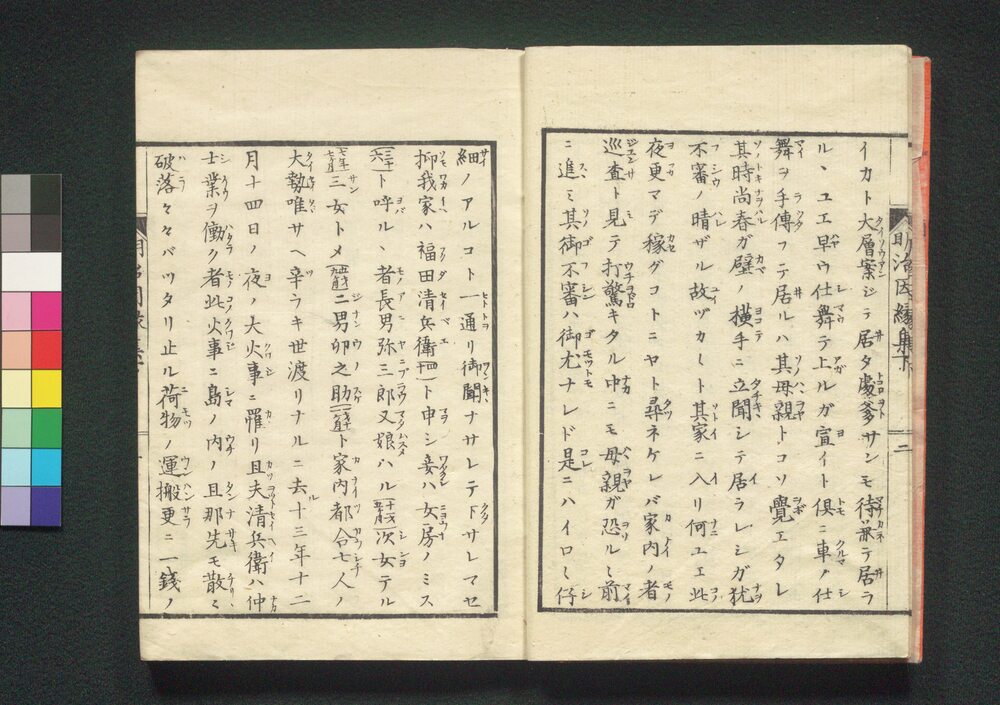 イカト大層案ジテ居タ處爹サンモ待兼テ居ラ
ル、ユエ早ウ仕舞テ上ルガ宜イト倶ニ車ノ仕
舞ヲ手傳フテ居ルハ其母親トコソ覺エタレ
其時尚春ガ壁ノ横手ニ立聞シテ居ラレシガ犹
不審ノ晴ザル故ヅカ〳〵ト其家ニ入リ何ユエ此
夜更マデ稼グコトニヤト尋ネケレバ家内ノ者
巡査ト見テ打驚キタル中ニモ母親ガ恐ル〳〵前
ニ進ミ其御不審ハ御尤ナレド是ニハイロ〳〵仔
明治因縁集下
二
細ノアルコト一通リ御聞ナサレテ下サレマセ
抑我家ハ福田清兵衛四十ト申シ妾ハ女房ノミス
三十六ト呼ル、者長男弥三郎又娘ハル次女テル
三女トメ二男卯之助ト家内都合七人ノ
大勢唯サヘ辛ラキ世渡リナルニ去ル十三年十二
月十四日ノ夜ノ大火事ニ罹リ且夫清兵衛ハ仲
士業ヲ働ク者此火事ニ島ノ内ノ且那先モ散〻
破落々々バツタリ止ル荷物ノ運搬更ニ一錢ノ